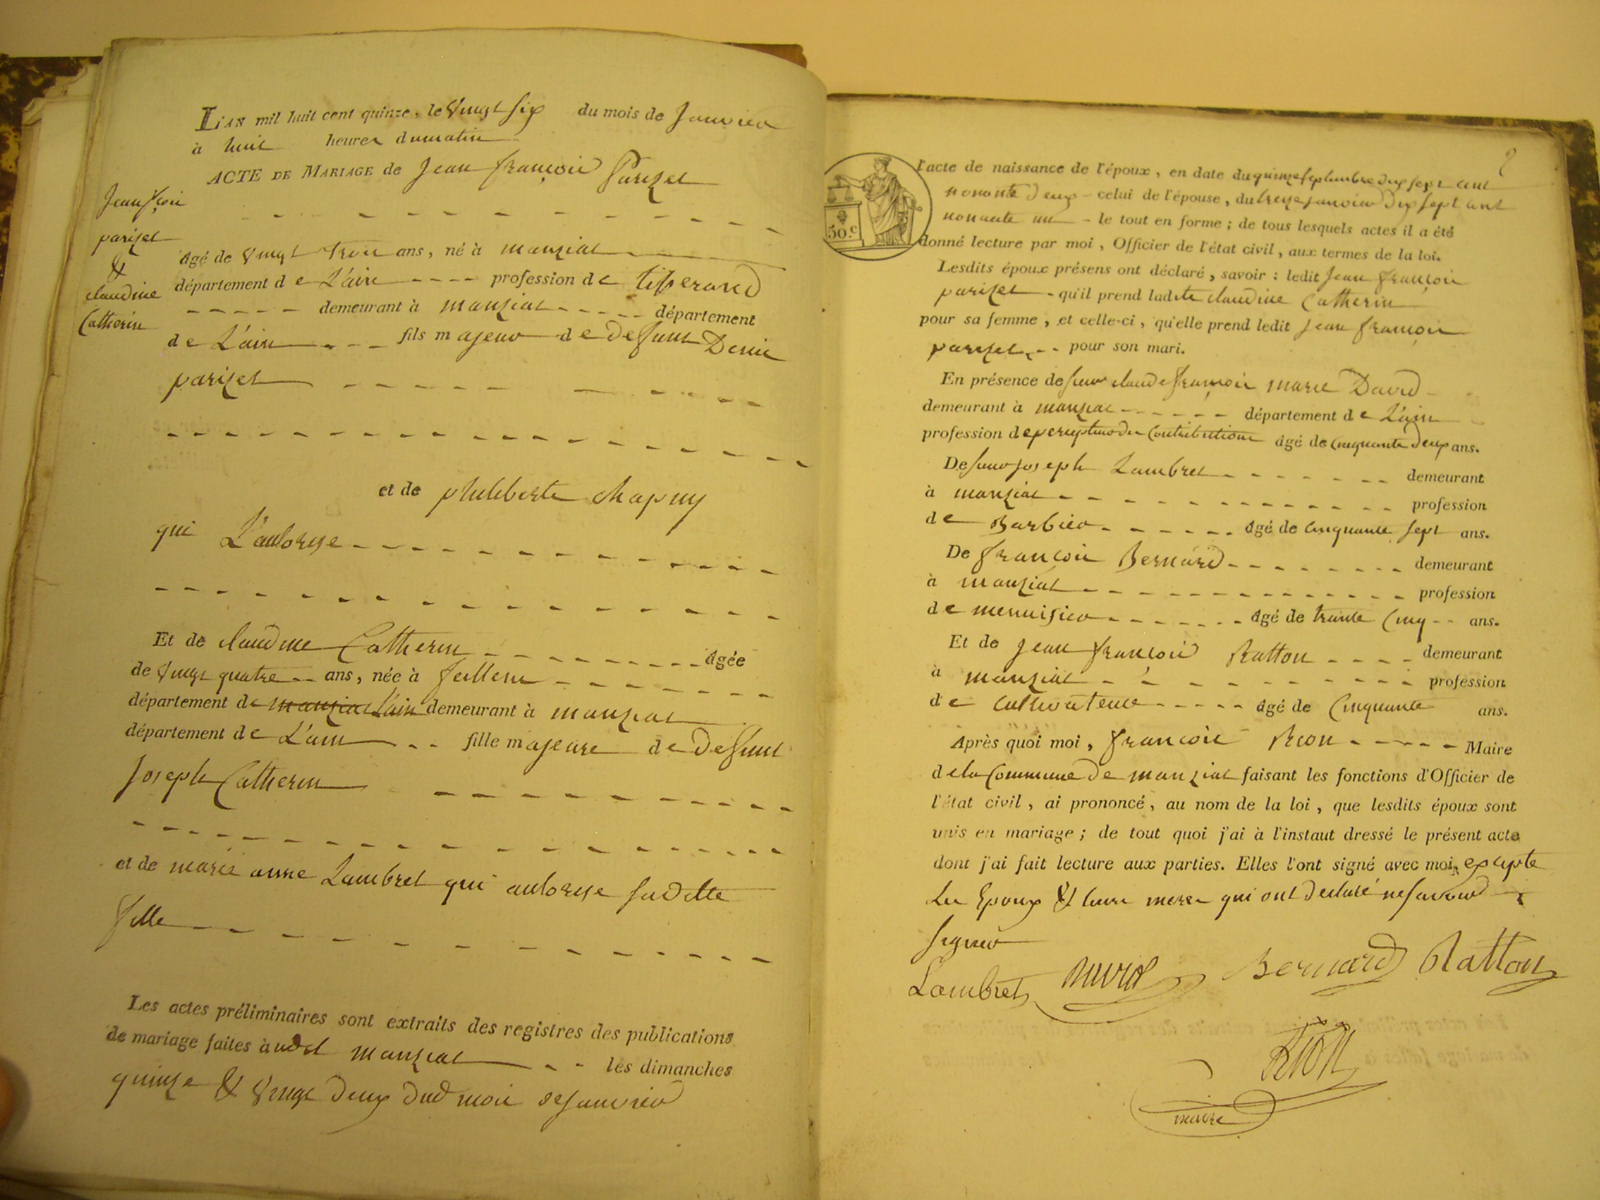 L'AN mil huit cent quinze, le vingt six du mois de Janvier
à huit heures du matin
ACTE DE MARIAGE de Jean françois Parizet
Jean fçois
parizet
&
claudine
Catherin
âgé de vingt trois ans, né à manziat
département de L'ain profession de tisserand
demeurant à manziat département
de L'ain fils majeur de defunt Denis
parizet
et de philiberte chapuy
qui L'autorise
Et de claudine Catherin âgée
de vingt quatre ans, née à feillens
département de manziat L'ain demeurant à manziat
département de L'ain fille majeure de Defunt
Joseph Catherin
et de marie anne Lambret qui autorise saditte
fille
Les actes préliminaires sont extraits des registres des publications
de mariage faites à manziat les dimanches
quinze & vingt deux dud mois de Janvier
2
30.c
l'acte de naissance de l'époux, en date du quinze septembre dix sept cent
nonante deux - celui de l'épouse, du treize janvier dix sept cent
nonante un - le tout en forme; de tous lesquels actes il a été
donné lecture par moi, Officier de l'état civil, aux termes de la loi.
Lesdits époux présens ont déclaré, savoir: ledit Jean françois
parizet - qu'il prend ladite claudine Catherin
pour sa femme, et celle-ci, qu'elle prend ledit Jean françois
parizet - - pour son mari.
En présence de sieur claude françois marie David
demeurant à manziat département de L'ain
profession de percepteur des Contributions âgé de cinquante deux ans.
De sieur joseph Lambret demeurant
à manziat profession
de Barbier âgé de cinquante sept ans.
De françois Bernard demeurant
à manziat profession
de menuisier âgé de trente cinq - - ans.
Et de Jean françois Ratton demeurant
à manziat profession
de cultivateur âgé de Cinquante ans.
Après quoi moi, françois Rion Maire
de la Commune de manziat faisant les fonctions d'Officier de
l'état civil, ai prononcé, au nom de la loi, que lesdits époux sont
unis en mariage; de tout quoi j'ai à l'instant dressé le présent acte
dont j'ai fait lecture aux parties. Elles l'ont signé avec moi, excepte
les Epoux & leurs meres qui ont declaré ne savoir
signer
Lambret David Bernard Ratton
Rion
maire